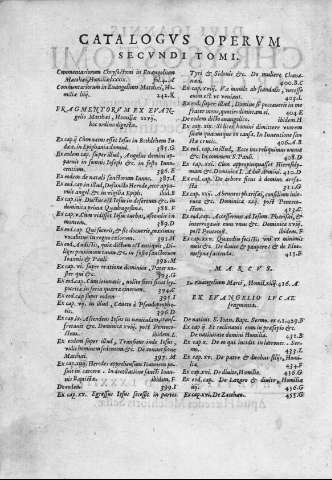 CATALOGVS OPERVM
SECVNDI TOMI.
Commentariorum Chrysostomi in Euangelium
Matthæi, Homiliæ
Commentariorum in Euangelium Matthæi, Ho-
miliæ
FRAGMENTORVM EX EVAN-
geliis Matthæi, Homiliæ
hoc ordine digestæ.
Ex cap. ij. Cum natus esset Iesus in Bethlehem Iu-
dææ, in Epiphaniam domini. 385.G
Ex eodem cap. super illud, Angelus domini ap-
paruit in somnis Ioseph: &c. in festo Inno-
centium. 386.E
Ex eodem de natali sanctorum Innoc. 387.I
Ex eod. cap. in illud, Defuncto Herode, ecce appa-
ruit angel. &c. in vigilia Epiph. ibid.
Ex cap. iiij. Ductus est Iesus in desertum &c. in
dominica prima Quadragesimæ. 388.F
Ex cap. v. Cum vidisset Iesus turbas, ascendit in
montem. 389.D
Ex eod. cap. Qui fuerit, & sic docuerit, maximus
vocabitur in regno cælorum. 391.H
Ex eod. Audistis, quia dictum est antiquis, Dili-
ges proximum tuum: &c. in festo sanctorum
Ioannis & Pauli. 392.M
Ex cap. vj. super oratione dominica, Pater no-
ster qui &c. 393.G
Ex eod. cap. Cum ieiunatis, nolite fieri sicut hypo-
critæ in feria quarta cinerum. 394.C
Ex eod. cap. super eodem 395.I
Ex cap. vij. in illud, Cauete à Pseudoprophe-
tis. 396.C
Ex cap. viij. Ascendente Iesu in nauiculam, transf-
fretauit &c. Dominica xviij. post Pentecosten.
Ex eodem super illud, Transiens inde Iesus,
vidit hominem sedentem &c. De conuersione
Matthæi. 397.M
Ex cap. xiiij. Herodes apprehensum Ioannem po-
suit in carcerem. In decollatione sancti Ioan-
nis Baptistæ. ibidem.F
De eodem. 399.I
Ex cap. xv. Egressus Iesus secessit in partes
Tyri & Sidonis &c. De muliere Chana-
næa. 400.B.C
Ex cap. xviij. Væ mundo ab scandalis, necesse
est vt veniant. 403.L
Ex eod. super illud, Domine si peccauerit in me
frater meus, quoties dimittam ei. 404.E
De eodem dicto euangelico. ibidem.H
Ex cap. xix. Si licet homini dimittere vxorem
suam quacunque ex causa. In Inuentione san-
ctæ crucis. 406.A.B
Ex eod. cap. in illud, Ecce nos reliquimus omnia
&c. In commem. S. Pauli. 408.D
Ex cap. xxj. Cum appropinquasset Hierosoly-
mam &c. Dominica I. Aduet. domini. 410.D
Ex eod. cap. De arbore fici à domino arefa-
cta. 411.G
Ex cap. xxij. Abeuntes pharisæi, consilium inie-
runt &c. Dominica xxiij. post Pentecost.
411.I
Ex eod. cap. Accesserunt ad Iesum Pharisæi, &
interrogauit eum vnus &c. Dominica xviij.
post Pentecost. ibidem.F
Ex cap. xxv. Quandiu fecistis vni ex minimis
&c. De diuite & paupere: & de Elee-
mosyna facienda. 413.B
MARCVS.
In Euangelium Marci, Homil. xiiij. 416.A
EX EVANGELIO LVCAE
fragmenta.
De natiui. S. Ioan. Bapt. Sermo.
Ex cap. ij. Et reclinauit eum in præsepio &c.
De natiuitate domini Homilia. 432.B
Ex cap. De eo qui incidit in latrones. Ser-
mo. 433.I
Ex cap. xv. De patre & duobus filijs, Homi-
lia. 434.F
Ex cap. xvj. De diuite, Homilia. 436.G
Ex eod. cap. De Lazaro & diuite, Homilia
ibid. 436.G
Ex cap. xix. De Zachæo. 455.G